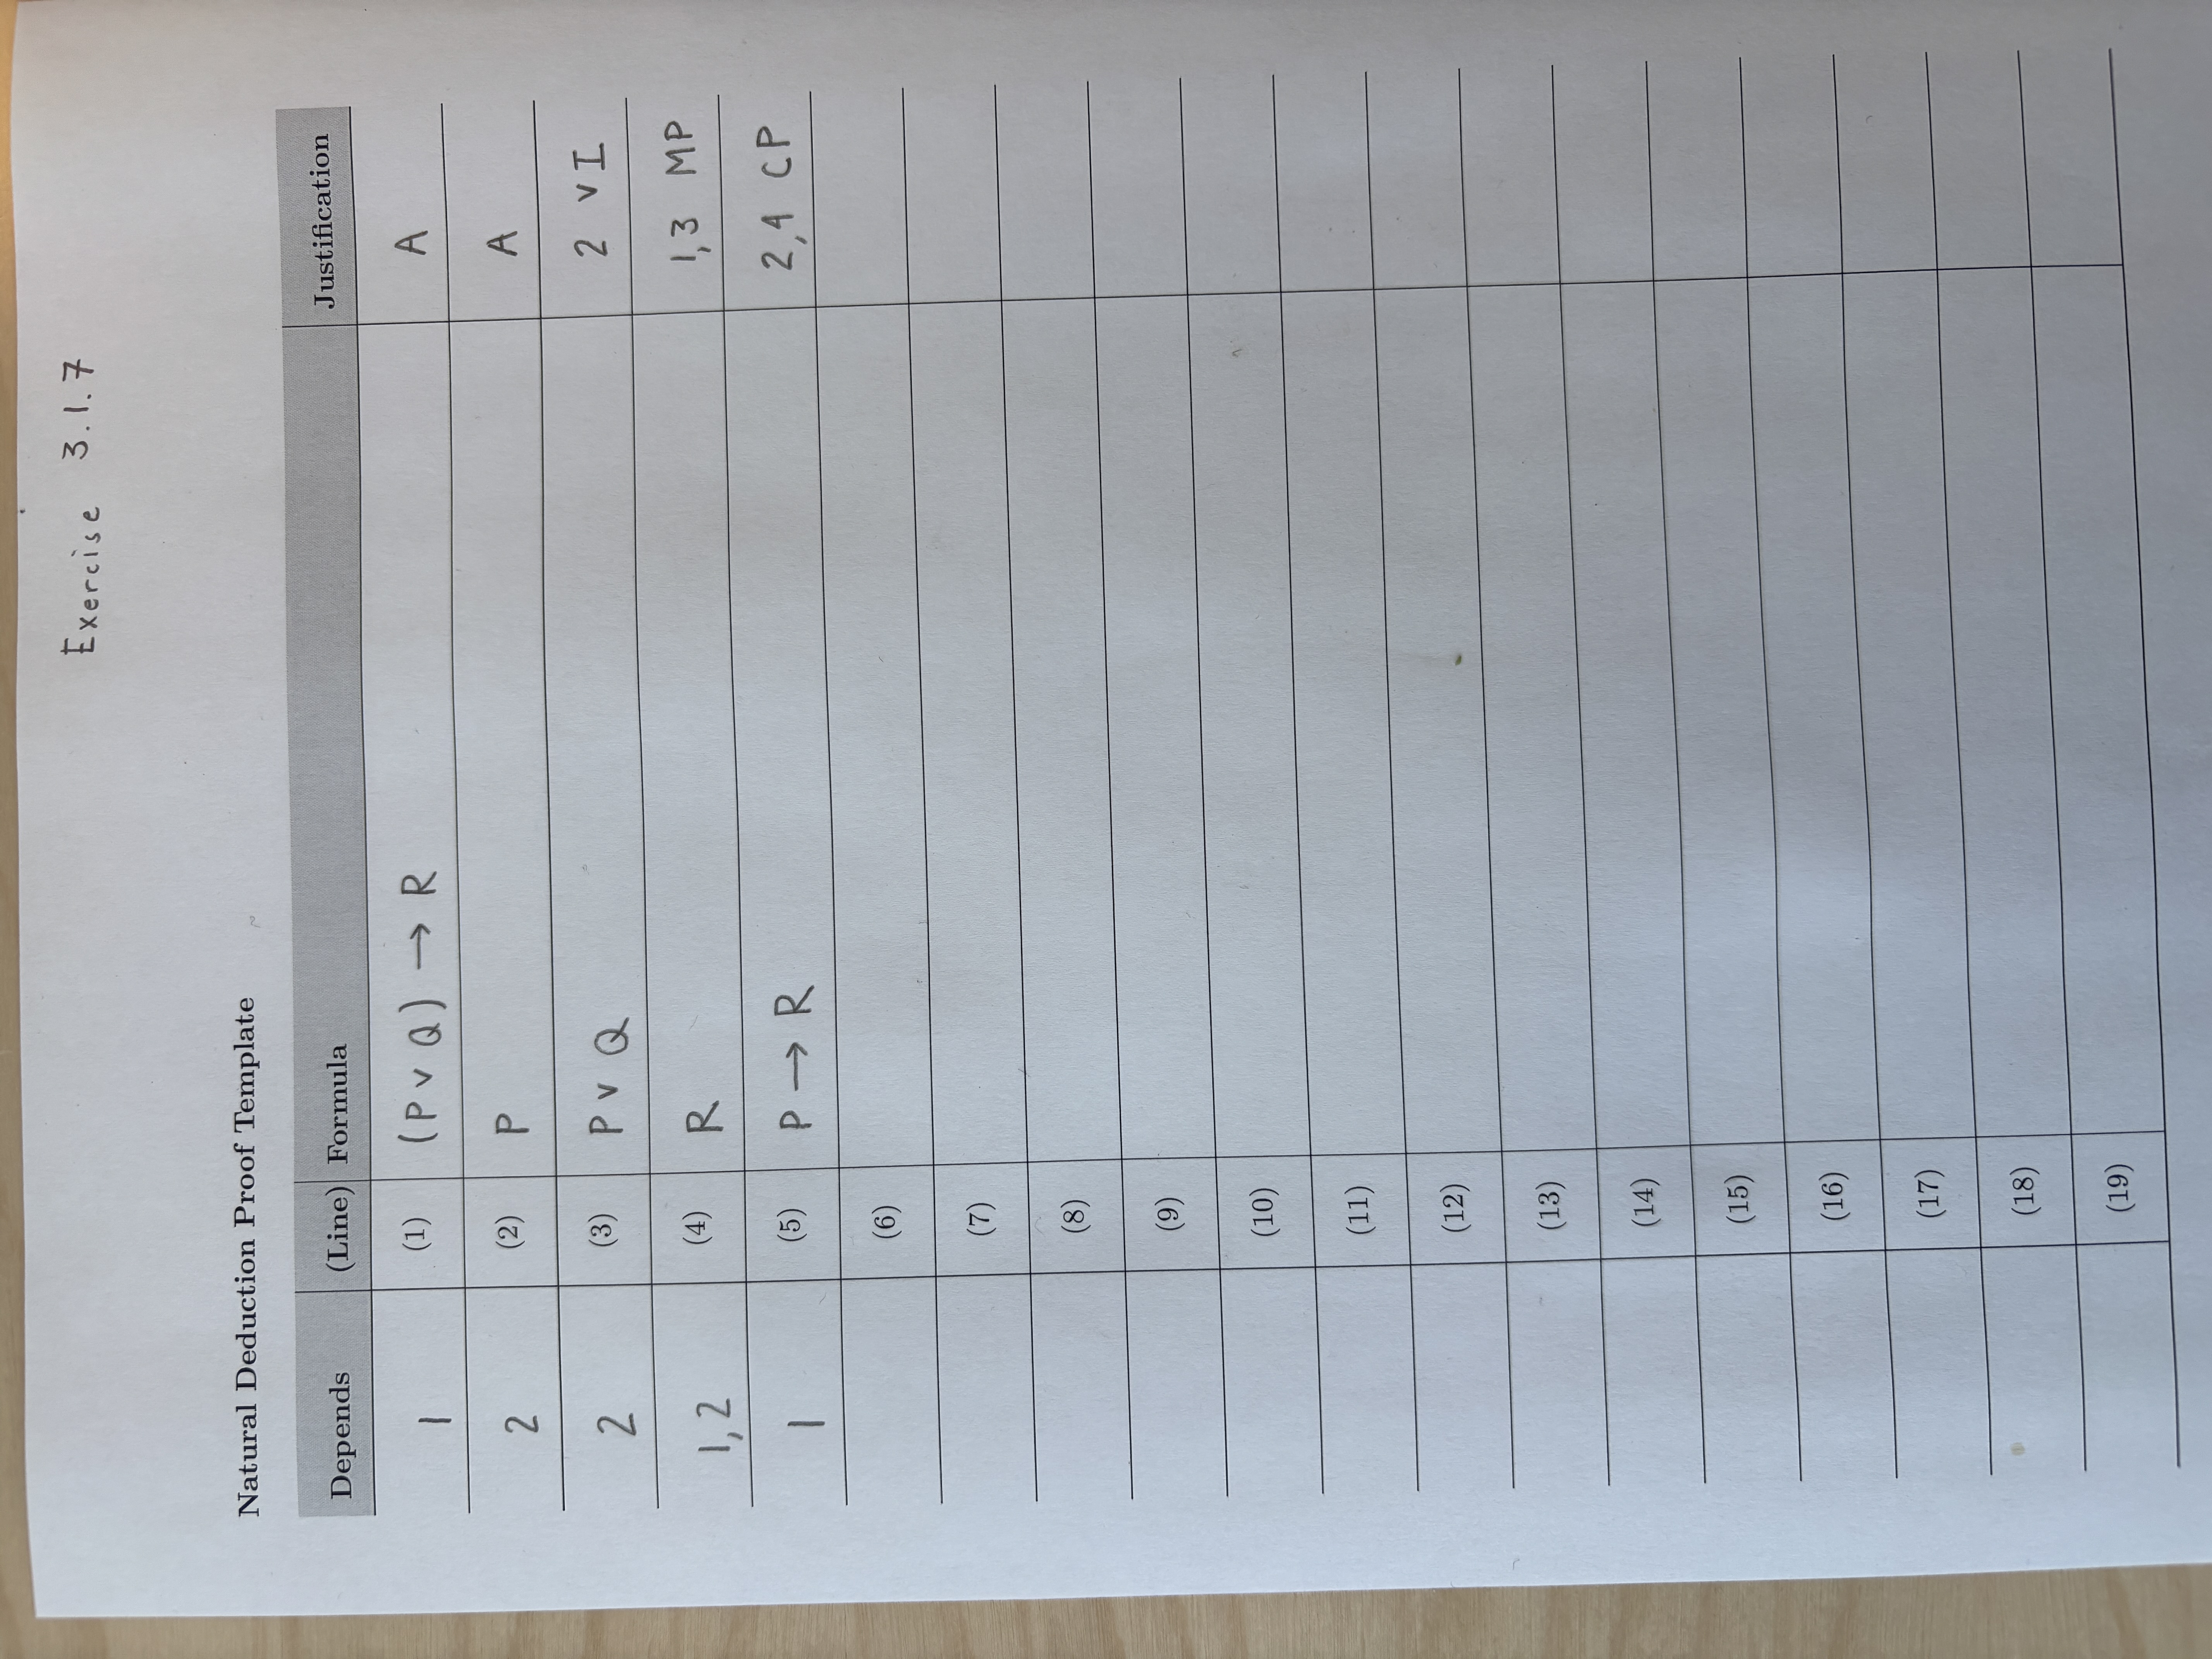 Exercise 3.1.7
Natural Deduction Proof Template
Depends (Line) Formula Justification
1 (1) (P ∨ Q) → R A
2 (2) P A
2 (3) P ∨ Q 2 ∨I
1,2 (4) R 1,3 MP
1 (5) P → R 2,4 CP
(6)
(7)
(8)
(9)
(10)
(11)
(12)
(13)
(14)
(15)
(16)
(17)
(18)
(19)